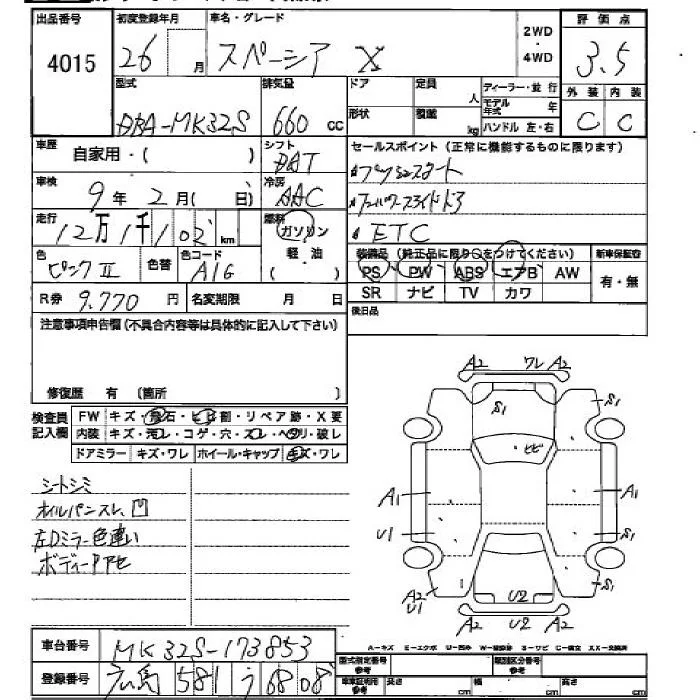 出品番号 初度登録年月 車名・グレード 2WD・4WD 評価点
4015 26 月 スペーシア X 3.5
型式 排気量 ドア 定員 人 ディーラー・並行 外装 内装
DBA-MK32S 660 cc 形状 積載 kg モデル年式 年 C C
ハンドル 左・右
車歴 自家用・( ) シフト DAT セールスポイント(正常に機能するものに限ります)
車検 9年 2月( 日) 冷房 AAC プッシュスタート
走行 12万1千102km 燃料 ガソリン パワースライドドア
軽油 ETC
色 ピンクII 色替 色コード A1G ( ) 装備品(純正品に限り○をつけてください) 新車保証書
PS PW ABS エアB AW 有・無
R券 9.770 円 名変期限 月 日 SR ナビ TV カワ
注意事項申告欄(不具合内容等は具体的に記入して下さい) 後日品
修復歴 有 〔箇所 〕
検査員 FW キズ・飛石・ヒビ割・リペア跡・X要
記入欄 内装 キズ・汚レ・コゲ・穴・スレ・ヘタリ・破レ
ドアミラー キズ・ワレ ホイール・キャップ キズ・ワレ
シートシミ
オイルパンスレ、凹
左Dミラー色違い
ボディー下アセ
A2 ワレ A2
S1 S1
ヒビ
A1 A1
U1 S1
A2 U1 U2 S1
A2 U2 A2
A-キズ E-エクボ U-凹み W-補修跡 S-サビ C-腐食 XX-交換済
車台番号 MK32S-173853
登録番号 広島 581 う 6808
型式指定番号 参考 類別区分番号 参考
車車証明用 参考 長さ cm 幅 cm 高さ cm